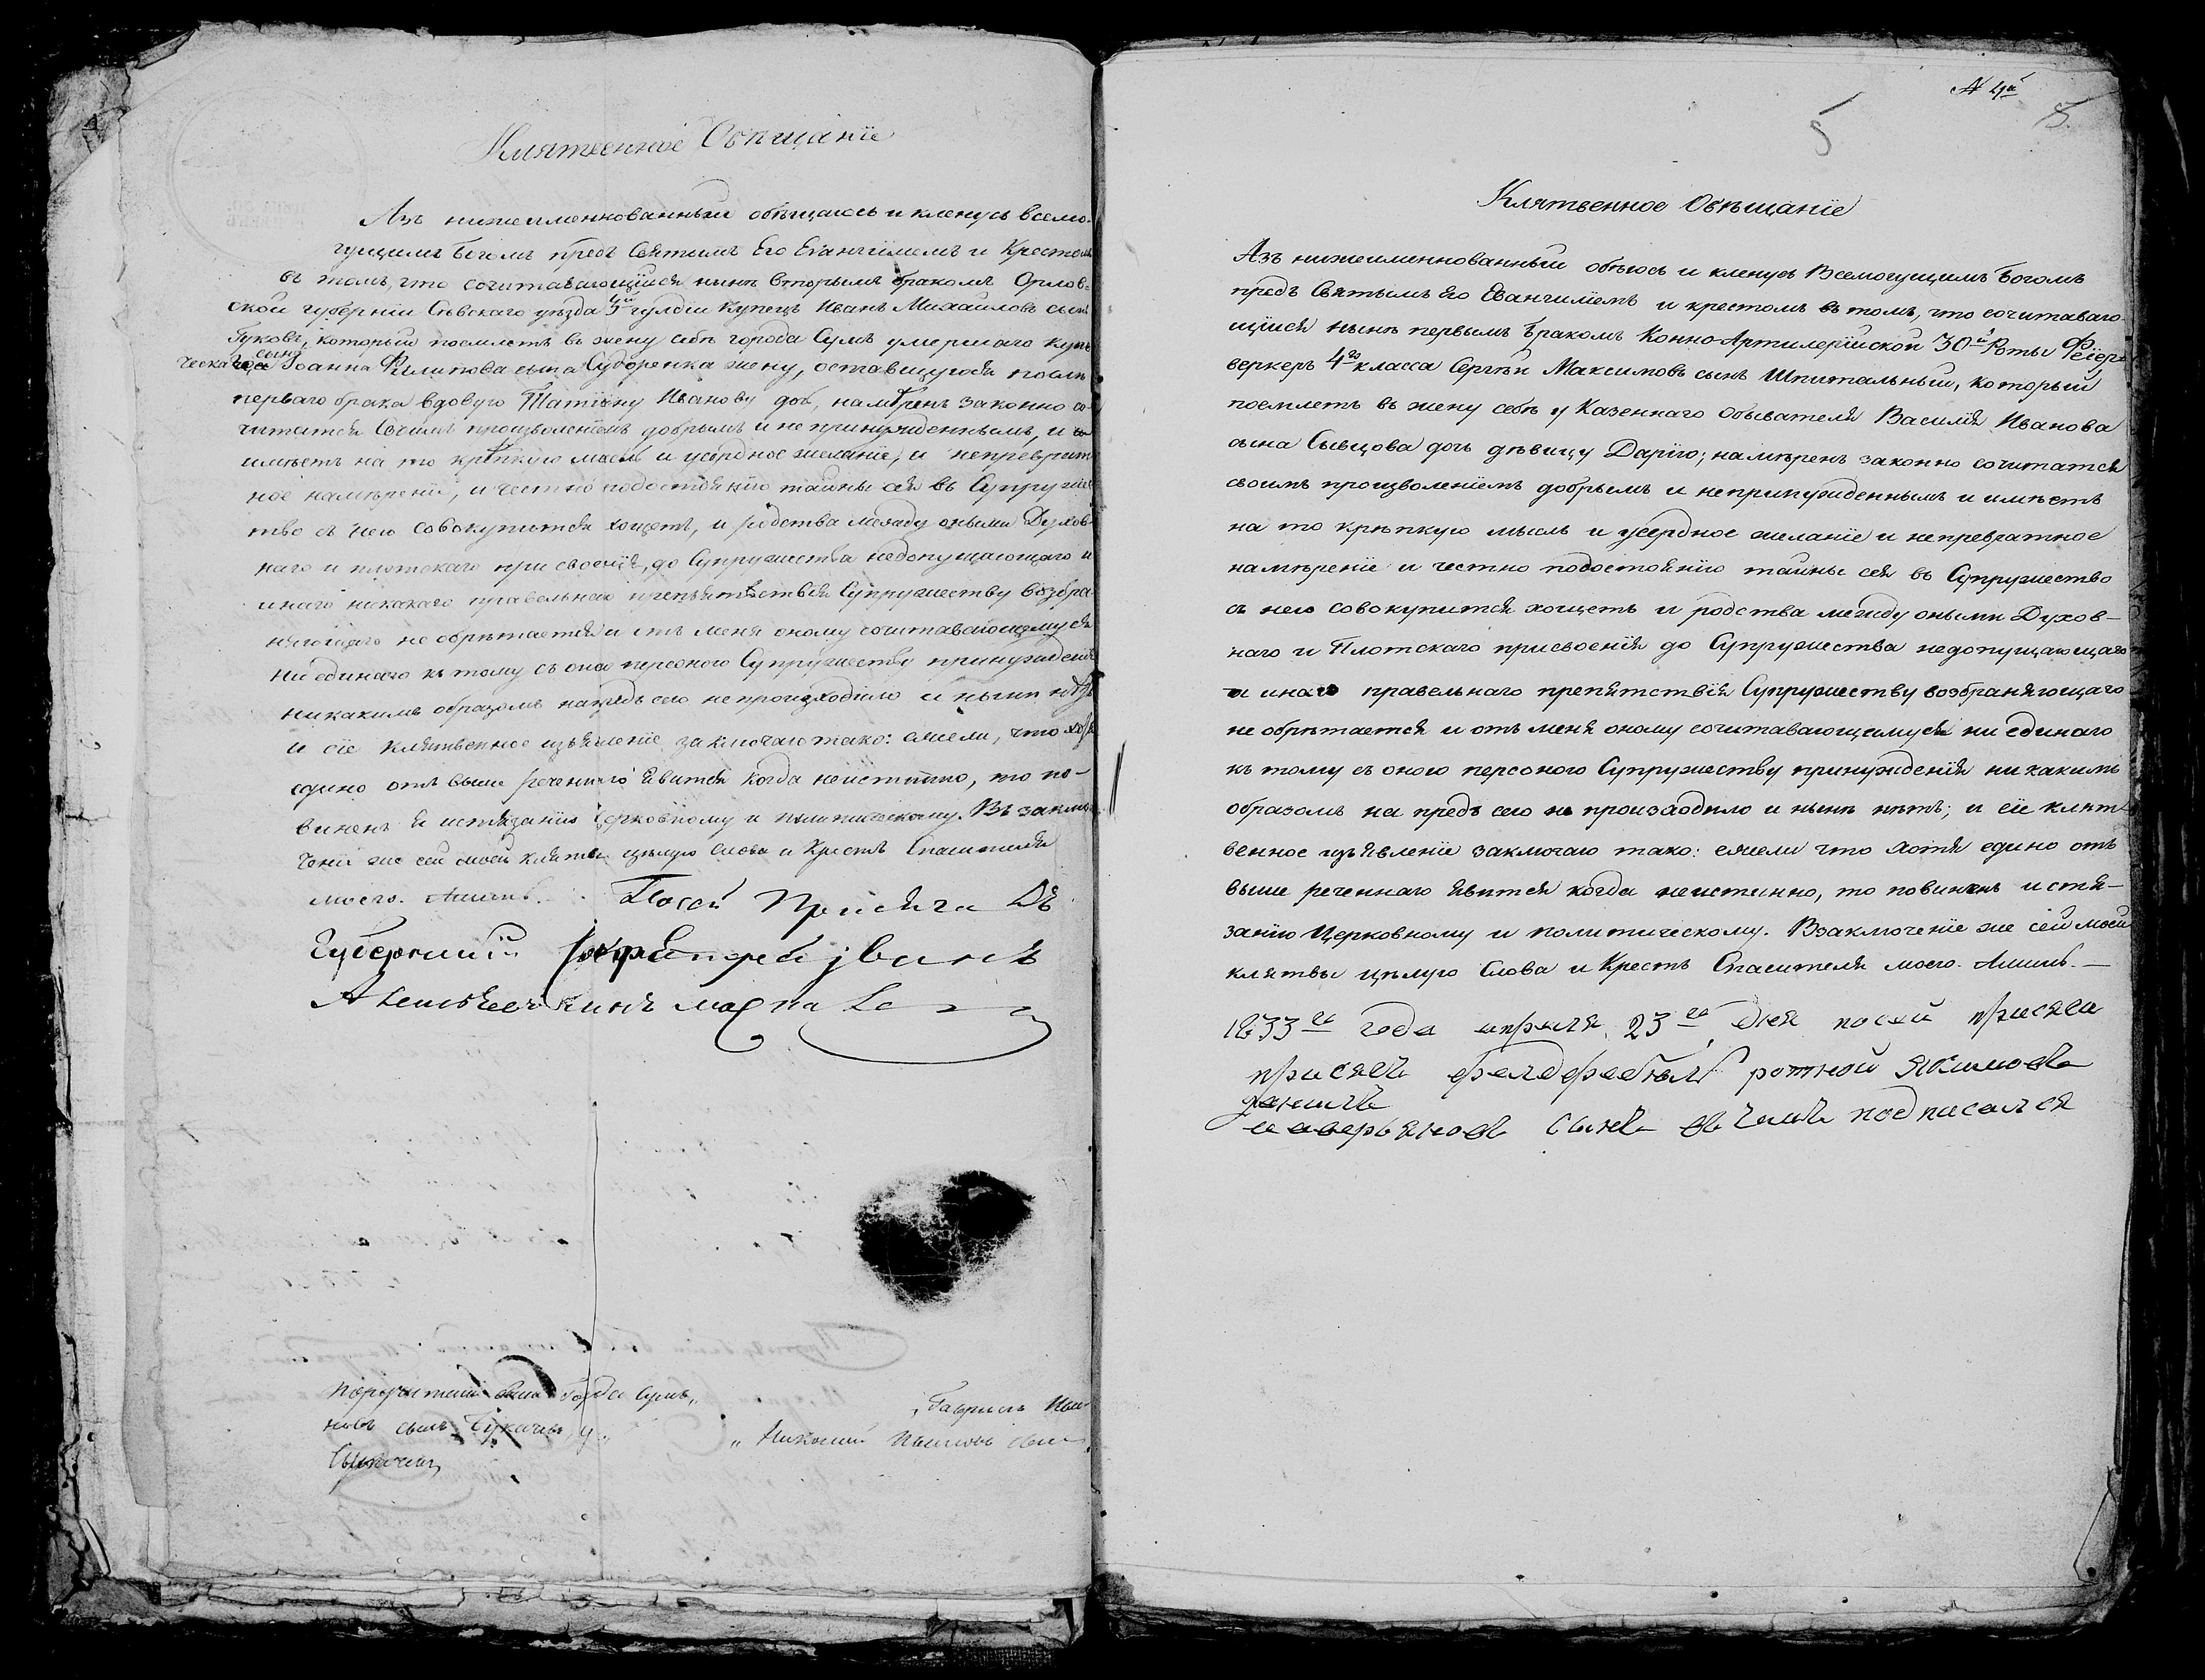 Клятвенное Обѣщанїе
Азъ нижеименнованный обѣщаюсь и кленусь всемо-
гущимъ Богомъ предъ Святымъ Его Евангилїемъ и Крестомъ
въ томъ, что сочитавающїйся нынѣ вторымъ бракомъ Орлов-
ской губернїи Сѣвскаго уѣзда 3й гулдїи Купецъ Иванъ Михайловъ сынъ
который поемлетъ въ жену себѣ города Сумъ умершаго купе
ческаго сына Іоанна Филипова сына Сидоренка жену, оставшуюся послѣ
перваго брака вдовую Татїяну Иванову доч, намѣренъ законно со-
читатся своимъ произволенїемъ добрымъ и непринужденнымъ, и
имѣетъ на то крѣпкую мысль и усердное желанїе, и непреврат
ное намѣренїе, и честно подостоянїю тайны сея въ Супруже
тво съ нею совокупитися хощетъ, и родства между оными Духов
наго и плотскаго присвоенїя, до Супружества недопущающаго и
инаго никакаго правельнаго препятствїя Супружеству возбра
няющаго не обрѣтается и отъ меня оному сочитавающемуся
ни единаго къ тому съ оною персоною Супружеству принужденїя
никакимъ образомъ напредъ сего непроизходило и нынѣ нѣтъ
и сїе клятвенное изъявленїе заключаю тако: ежели, что хотя
едино отъ выше реченнаго явится когда неистинно, то по-
виненъ я истязанїю Церковному и политическому. Въ заклю
ченїи же сей моей клятвы цѣлую Слова и Крестъ Спасителя
моего. Аминь. Посей Присяга
Губернскїй Иванъ
порутчики города Сумъ, Гаврїилъ Ива-
новъ сынъ Николай сынъ
№ 4й
5
5.
Клятвенное Обѣщанїе
Азъ нижеименнованный обѣюсь и кленусь Всемогущимъ Богомъ
предъ Святымъ Его Евангилїемъ и крестомъ въ томъ, что сочитаваю-
щїйся нынѣ первымъ бракомъ Конно-Артилерїйской 30й Роты Фейер-
веркеръ 4го класса Сергѣй Максимовъ сынъ Шпитальный, который
поемлетъ въ жену себѣ у Казеннаго Обывателя Василїя Иванова
сына Сывцова доч дѣвицу Дарїю; намѣренъ законно сочитатся
своимъ произволенїемъ добрымъ и непринужденнымъ и имѣетъ
на то крѣпкую мысль и усердное желанїе и непревратное
намѣренїе и честно подостоянїю тайны сея въ Супружество
съ нею совокупится хощетъ и родства между оными Духов-
наго и Плотскаго присвоенїя до Супружества недопущающаго
и инаго правельнаго препятствїя Супружеству возбраняющаго
не обрѣтается и отъ меня оному сочитавающемуся ни единаго
къ тому съ оною персоною Супружеству принужденїя никакимъ
образомъ на предъ сего не произходило и нынѣ нѣтъ; и сїе клят-
венное изъявленїе заключаю тако: ежели что хотя едино отъ
выше реченнаго явится когда неистинно, то повиненъ истя-
занїю Церковному и политическому. Взаключенїе же сей моей
клятвы цѣлую Слова и Крестъ Спасителя моего. Аминь.—
1833го года апреля 23го дня посей присяга
присягъ ротной Якимовъ
Аверьяновъ сынъ въ чемъ подписался